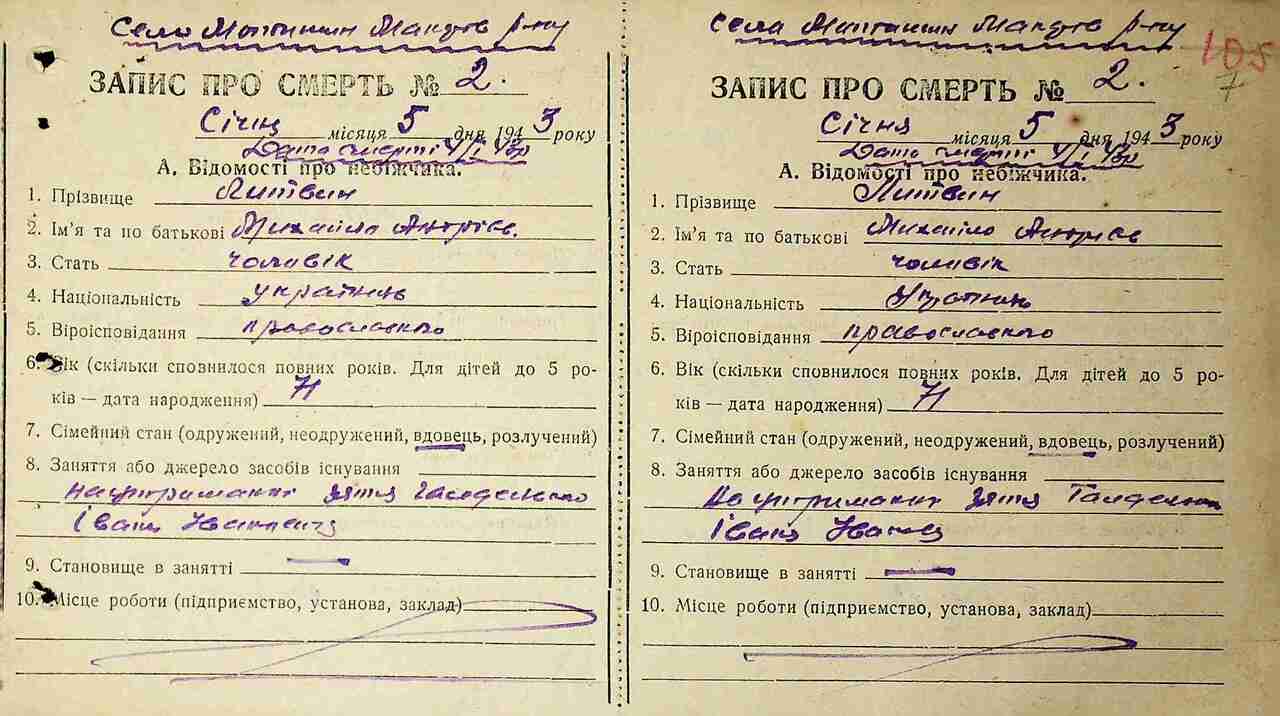 Село Маньків р-ну
ЗАПИС ПРО СМЕРТЬ № 2.
Січня місяця 5 дня 1943 року
Дата смерті 4/I
А. Відомості про небіжчика.
1. Прізвище Литвин
2. Ім'я та по батькові Михайло Андріев.
3. Стать чоловік
4. Національність українець
5. Віроісповідання православного
6. Вік (скільки сповнилося повних років. Для дітей до 5 ро-
ків — дата народження) 71
7. Сімейний стан (одружений, неодружений, вдовець, розлучений)
8. Заняття або джерело засобів існування
на утриманні зятя
Івана
9. Становище в занятті —
10. Місце роботи (підприємство, установа, заклад)
Села Маньків р-ну
105
7
ЗАПИС ПРО СМЕРТЬ № 2.
Січня місяця 5 дня 1943 року
Дата смерті 4/I
А. Відомості про небіжчика.
1. Прізвище Литвин
2. Ім'я та по батькові Михайло Андріев
3. Стать чоловік
4. Національність
5. Віроісповідання православного
6. Вік (скільки сповнилося повних років. Для дітей до 5 ро-
ків — дата народження) 71
7. Сімейний стан (одружений, неодружений, вдовець, розлучений)
8. Заняття або джерело засобів існування
на утриманні зятя
Івана
9. Становище в занятті —
10. Місце роботи (підприємство, установа, заклад)